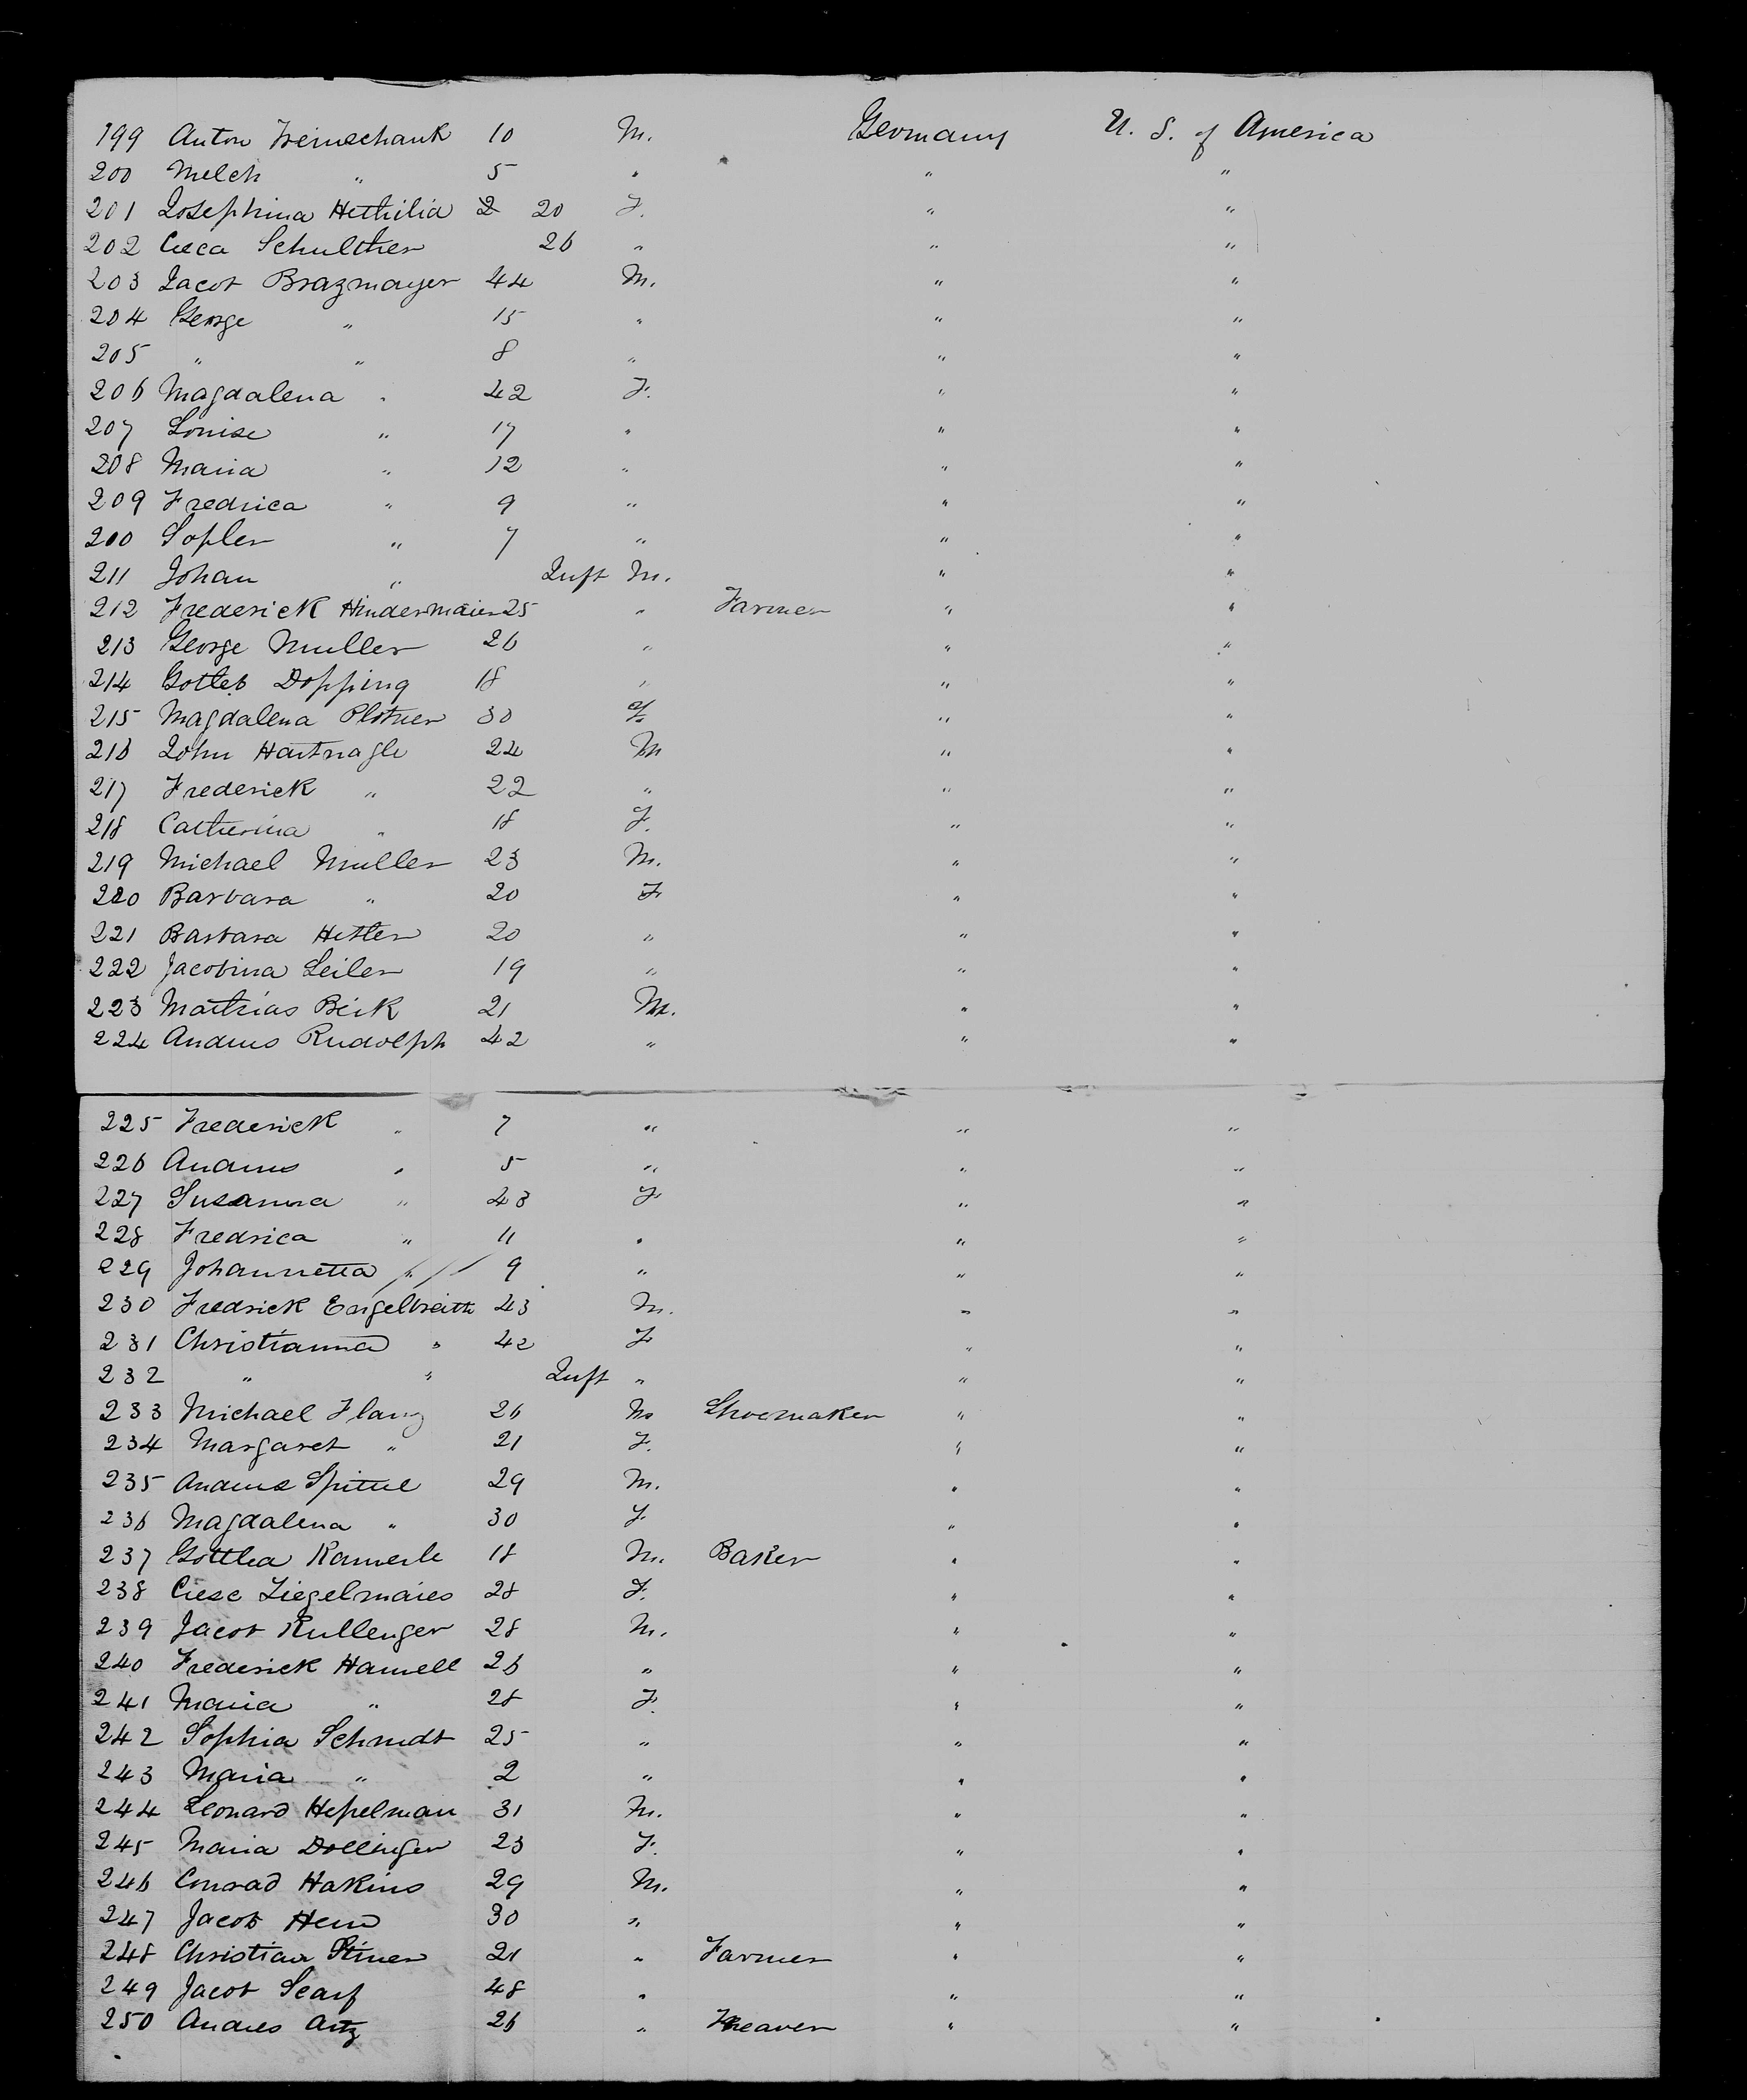 199 Anton Freinschank 10 M. Germany U. S. of America
200 Melch " 5 " " "
201 Josephina Hethilia 2 20 F. " "
202 Creca Schulther 26 " " "
203 Jacob Brazmayer 44 M. " "
204 George " 15 " " "
205 " " 8 " " "
206 Magdalena " 42 F. " "
207 Louise " 17 " " "
208 Maria " 12 " " "
209 Fredrica " 9 " " "
200 Sopler " 7 " " "
211 Johan " Inft M. " "
212 Frederick Hindermaier 25 " Farmer " "
213 George Muller 26 " " "
214 Gotleb Dopping 18 " " "
215 Magdalena Plotner 30 F. " "
216 John Hartnagle 24 M " "
217 Frederick " 22 " " "
218 Catherina " 18 F. " "
219 Michael Muller 23 M. " "
220 Barbara " 20 F " "
221 Barbara Hetler 20 " " "
222 Jacobina Seiler 19 " " "
223 Mathias Beik 21 M. " "
224 Andrus Rudolph 42 " " "
225 Frederick " 7 " " "
226 Andrus " 5 " " "
227 Susanna " 43 F " "
228 Fredrica " 11 " " "
229 Johannetta " 9 " " "
230 Fredrick Engelbreith 43 M. " "
231 Christianna " 42 F " "
232 " " Inft " " "
233 Michael Flanz 26 M Shoemaker " "
234 Margaret " 21 F. " "
235 Andrus Spittle 29 M. " "
236 Magdalena " 30 F " "
237 Gottlea Kamerle 18 M. Baker " "
238 Crese Ziegelmaies 28 F. " "
239 Jacob Rullenger 28 M. " "
240 Frederick Hamell 26 " " "
241 Maria " 28 F. " "
242 Sophia Schmdt 25 " " "
243 Maria " 2 " " "
244 Leonard Hepelman 31 M. " "
245 Maria Dollinger 23 F. " "
246 Conrad Hakins 29 M. " "
247 Jacob Hem 30 " " "
248 Christian Stiner 21 " Farmer " "
249 Jacob Scarf 48 " " "
250 Andres Artz 26 " Weaver " "